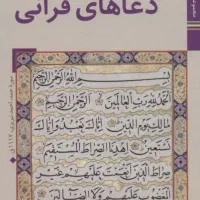 دعاهای قرآنی
بِسْمِ اللَّهِ الرَّحْمَنِ الرَّحِيمِ
الْحَمْدُ لِلَّهِ رَبِّ الْعَالَمِينَ الرَّحْمَنِ الرَّحِيمِ
مَالِكِ يَوْمِ الدِّينِ إِيَّاكَ نَعْبُدُ وَإِيَّاكَ
نَسْتَعِينُ اهْدِنَا الصِّرَاطَ الْمُسْتَقِيمَ
صِرَاطَ الَّذِينَ أَنْعَمْتَ عَلَيْهِمْ غَيْرِ
الْمَغْضُوبِ عَلَيْهِمْ وَلَا الضَّالِّينَ
سوره حمد، احمد نیریزی،